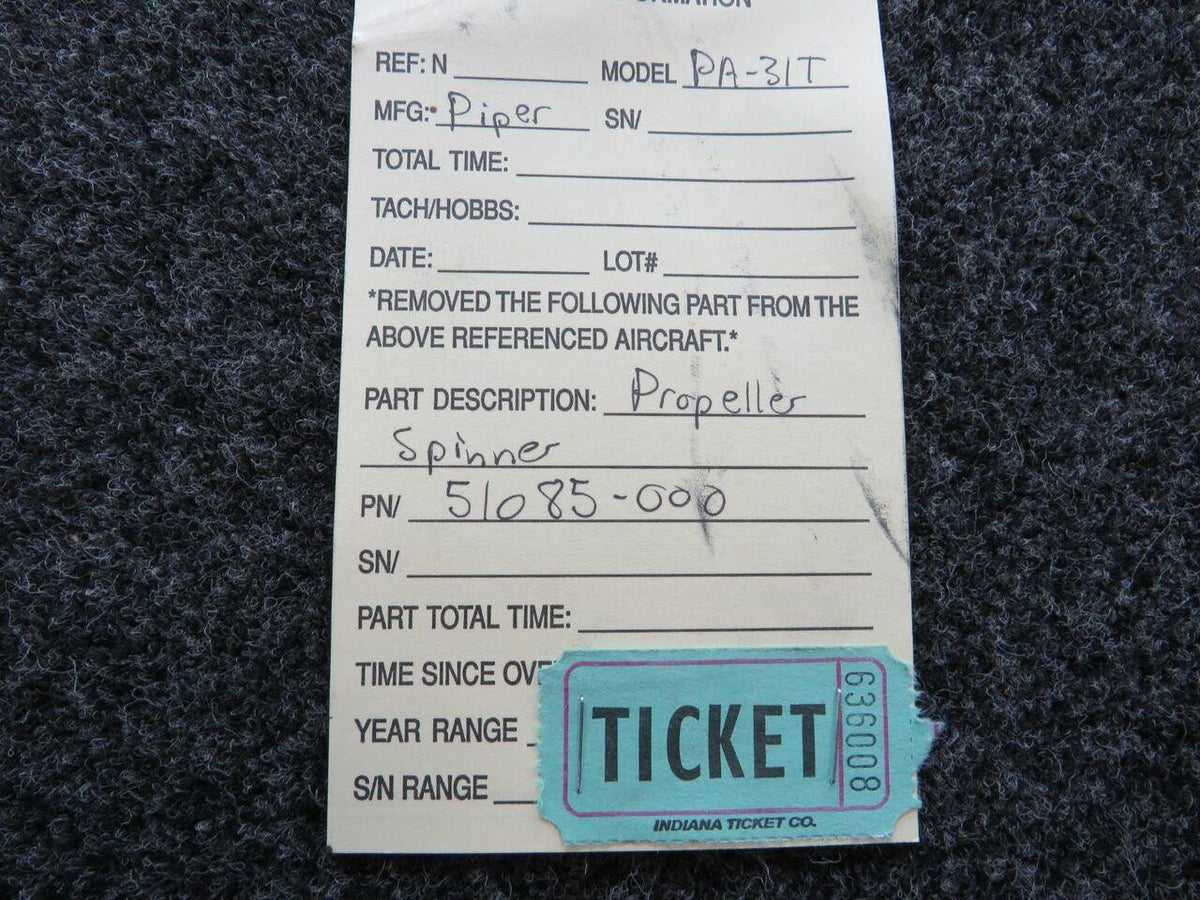 REF: N MODEL PA-31T
MFG: Piper SN/
TOTAL TIME:
TACH/HOBBS:
DATE: LOT#
*REMOVED THE FOLLOWING PART FROM THE
ABOVE REFERENCED AIRCRAFT.*
PART DESCRIPTION: Propeller
Spinner
PN/ 51085-000
SN/
PART TOTAL TIME:
TIME SINCE
YEAR RANGE
S/N RANGE
TICKET
636008
INDIANA TICKET CO.